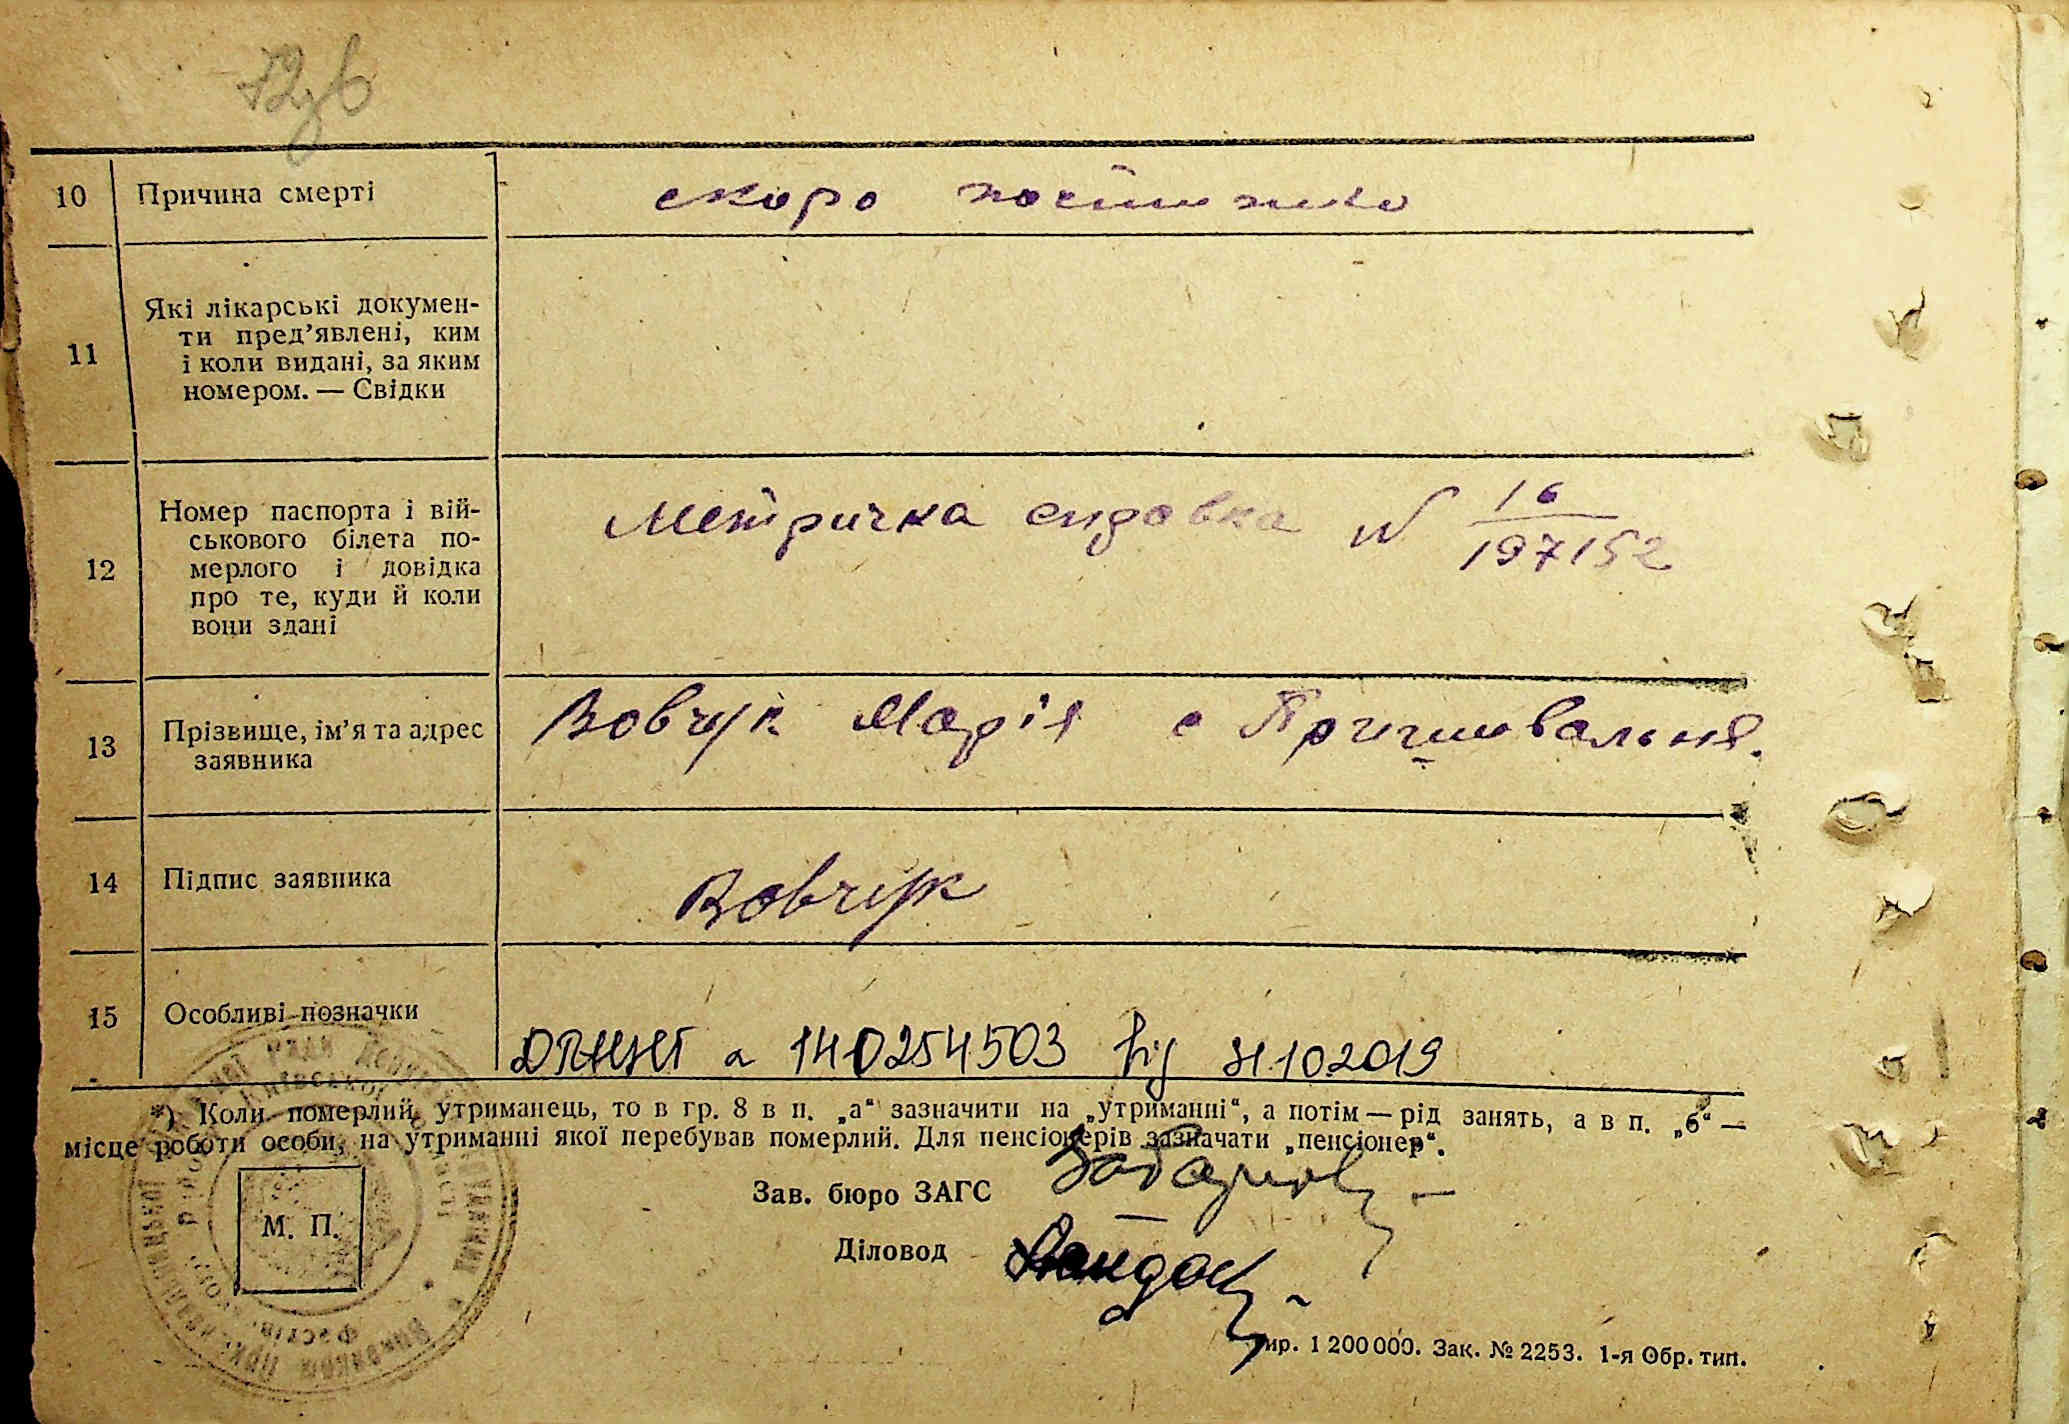 72зв
10 Причина смерті скоро
11 Які лікарські докумен-
ти пред’явлені, ким
і коли видані, за яким
номером. — Свідки
12 Номер паспорта і вій-
ськового білета по-
мерлого і довідка
про те, куди й коли
вони здані
Метричка N 16/197152
13 Прізвище, ім’я та адрес
заявника
Вовчук Марія с Пришивальня.
14 Підпис заявника Вовчук
15 Особливі позначки
а 140254503 від 31.10.2019
*) Коли померлий утриманець, то в гр. 8 в п. „а“ зазначити на „утриманні“, а потім — рід занять, а в п. „б“ —
місце роботи особи, на утриманні якої перебував померлий. Для пенсіонерів зазначати „пенсіонер“.
Зав. бюро ЗАГС
М. П.
Діловод
Тир. 1 200 000. Зак. № 2253. 1-я Обр. тип.